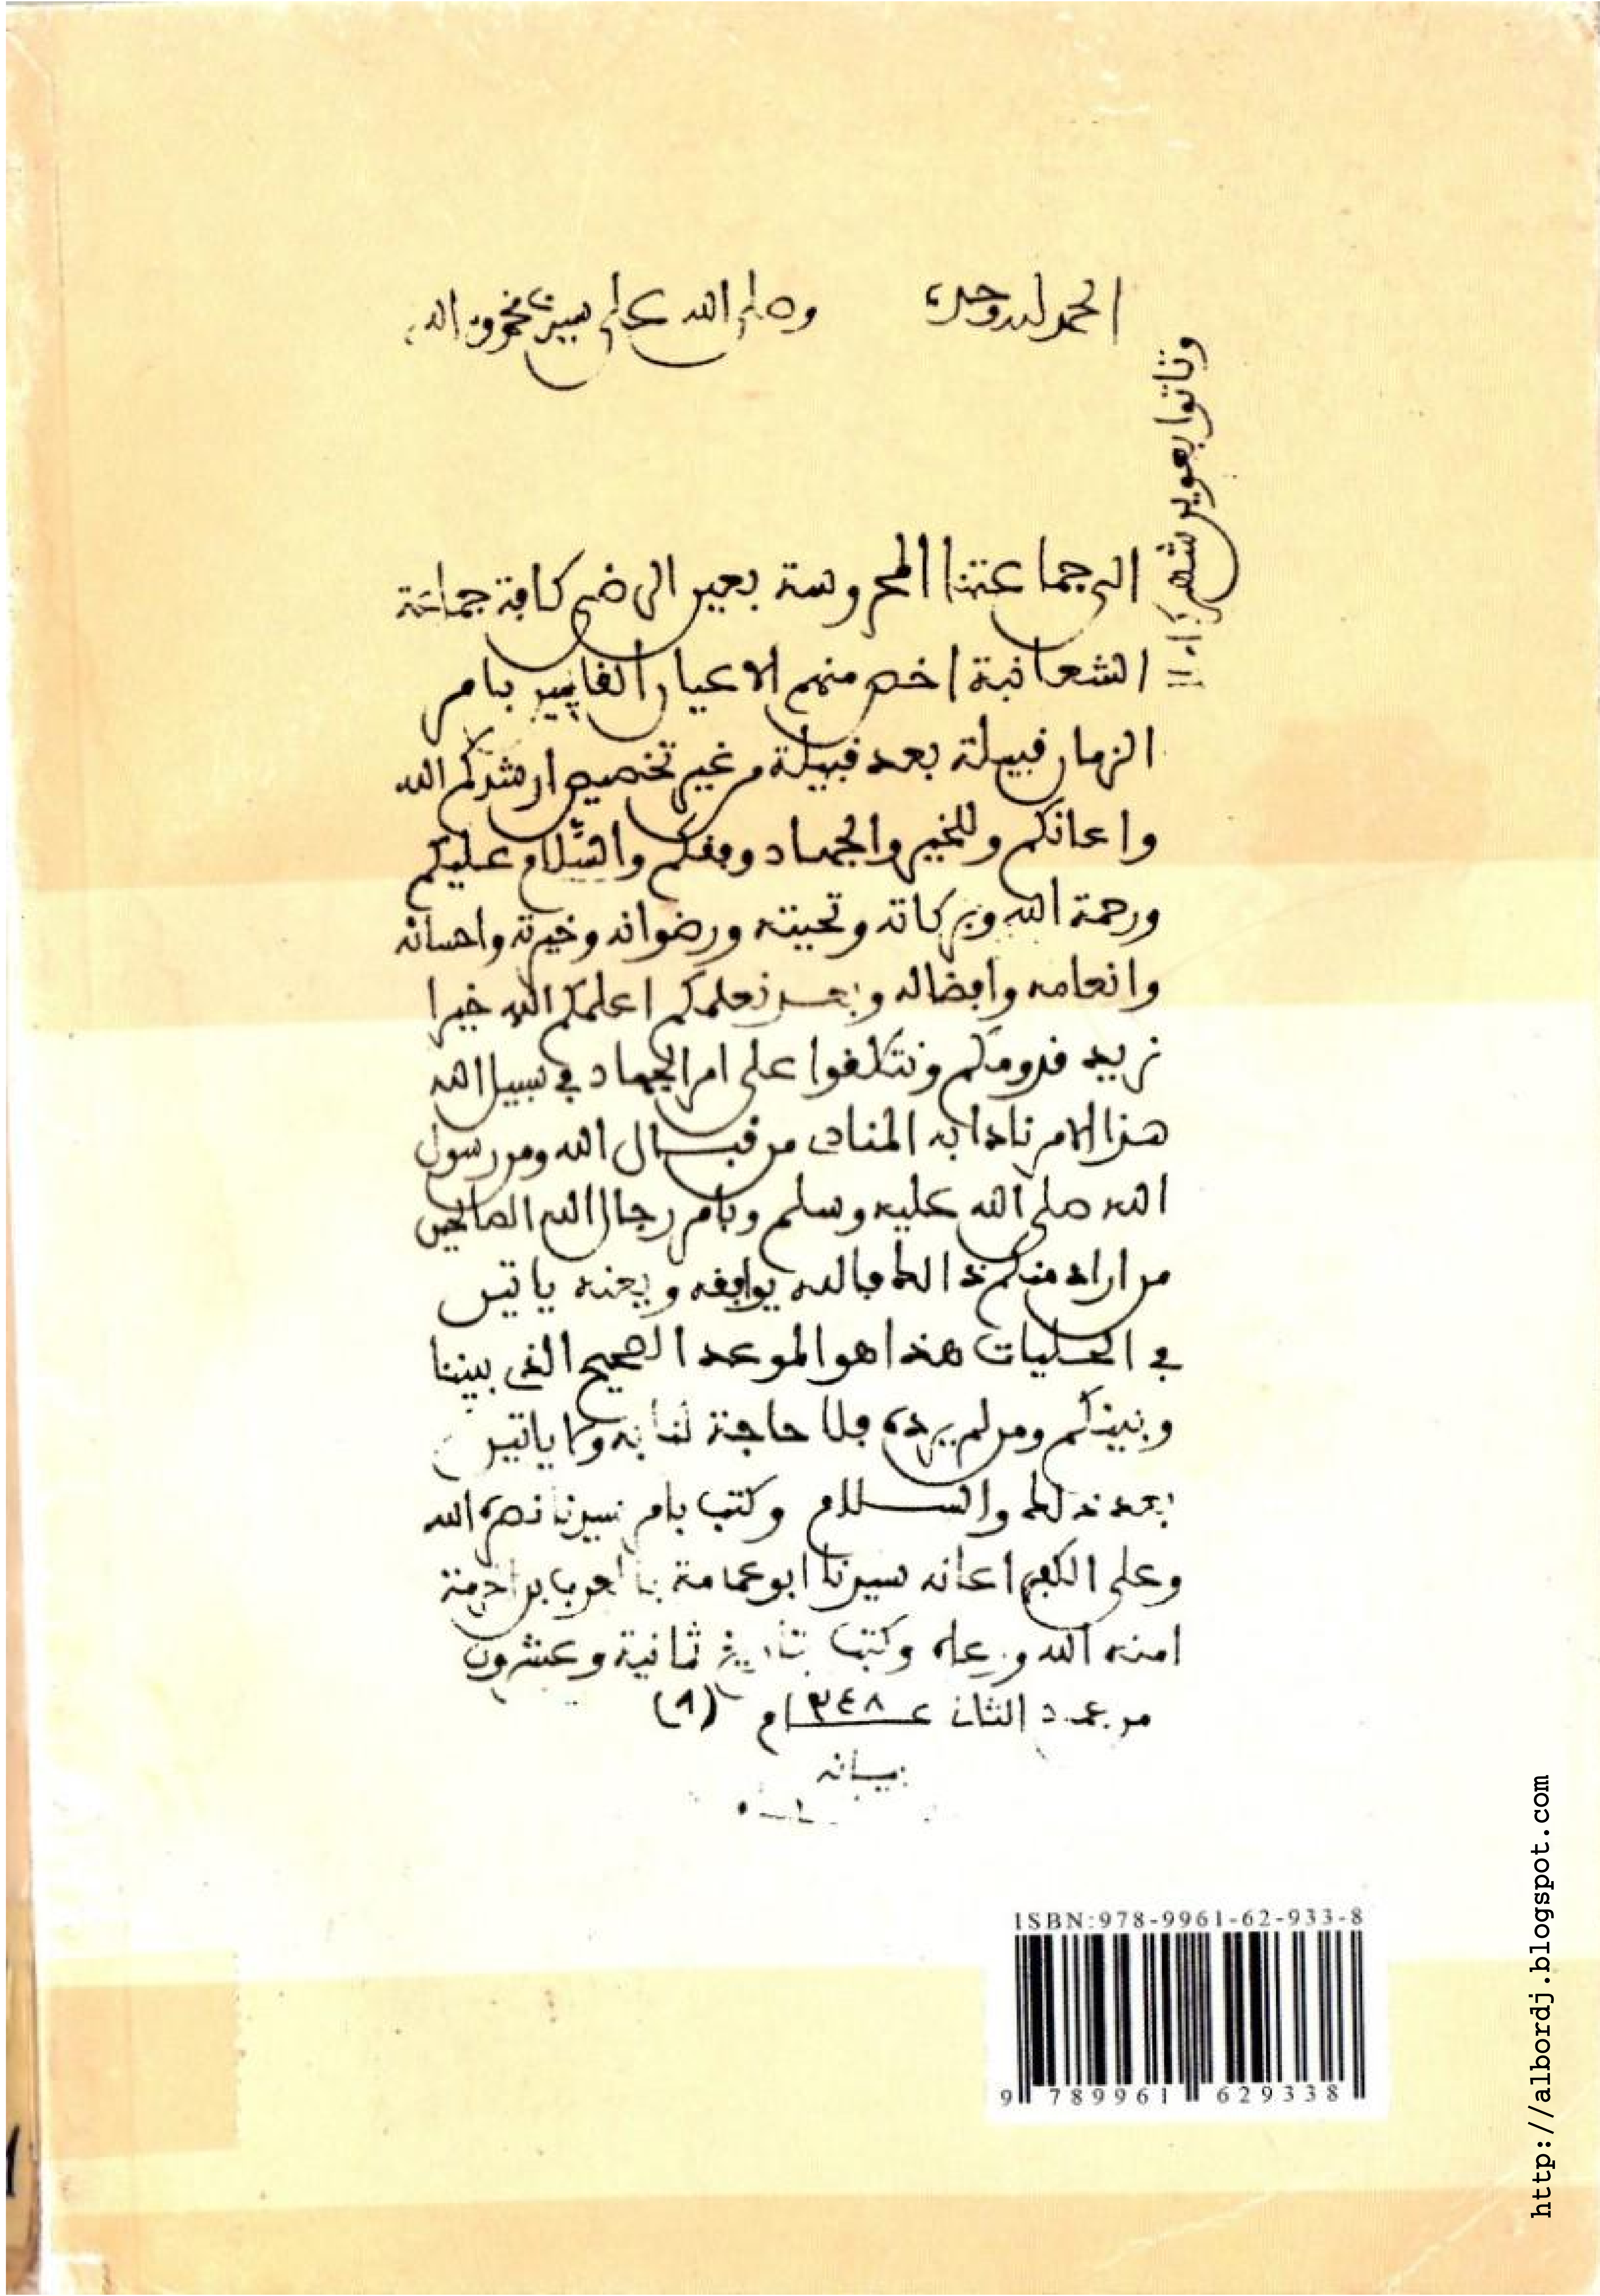 الحمد لله وحده وصلى الله على سيدنا محمد وءاله
الى جماعتنا المحروسة بعين الرضى كافة جماعة
الشعانبة اخص منهم الاعيان القايمين بامر
الزمان قبيلة بعد قبيلة من غير تخصيص ارشدكم الله
واعانكم وللخير والجهاد وفقكم والسلام عليكم
ورحمة الله وبركاته وتحيته ورضوانه وخيرته واحسانه
وانعامه وافضاله وبعد نعلمكم اعلمكم الله خيرا
نريد قدومكم ونتكلفوا على امر الجهاد في سبيل الله
هذا الامر نادا به المنادى من قبال الله ومن رسول
الله صلى الله عليه وسلم وبامر رجال الله الصالحين
من اراد منكم ذالك فالله يوافقه ويعنه ياتين
في الحليات هذا هو الموعد الصحيح الذى بيننا
وبينكم ومن لم يرده فلا حاجة لنا به ولا ياتين
بعد ذلك والسلام وكتب بامر سيدنا نصره الله
وعلى الكفر اعانه سيدنا ابو عمامة بن العرب بن
امنه الله ورعاه وكتب بتاريخ ثمانية وعشرون
من جمد الثانى عام ٣٤٨ (٩)
بيانه
وتاتوا بعوين شهر
ISBN:978-9961-62-933-8
9 789961 629338
http://albordj.blogspot.com